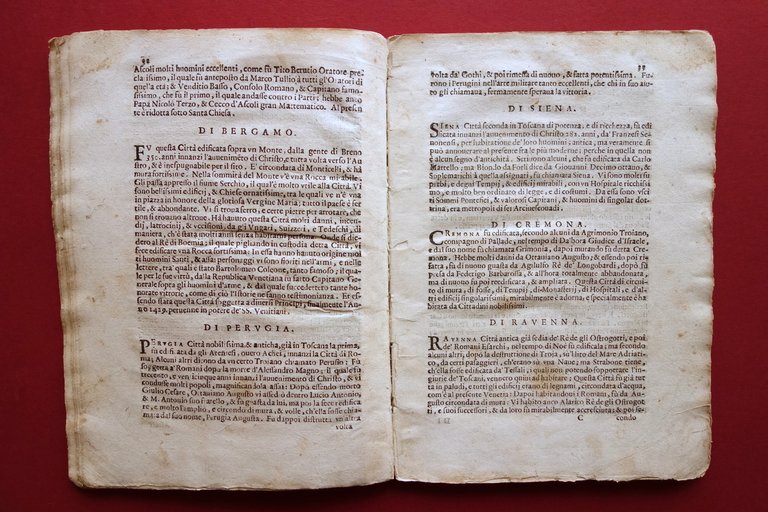 38
Ascoli molti huomini eccellenti, come fù Tito Betutio Oratore pre-
clarissimo, il quale fù anteposto da Marco Tullio à tutti gl'Oratori di
quella età; & Venditio Basso, Consolo Romano, & Capitano famo-
sissimo, che fù il primo, il quale andasse contro i Parti: hebbe anco
Papa Nicolò Terzo, & Cecco d'Ascoli gran Matematico. Al presen-
te è ridotta sotto Santa Chiesa.
DI BERGAMO.
FV questa Città edificata sopra vn Monte, dalla gente di Breno
innanzi l'auuenimento di Christo, e tutta volta verso l'Au
stro, & è inespugnabile per il sito. E circondata di Monticelli, & hà
mura fortissime. Nella sommità del Monte v'è vna Rocca mirabile.
Gli passa appresso il fiume Serchio, il quale è molto vtile alla Città. Vi
sono bellissimi edificij, & Chiese ornatissime, tra le quali ve n'è vna
in piazza in honore della gloriosa Vergine Maria: tutto il paese è fer
tile, & abbondante. Vi si troua ferro, e certe pietre per arrotare, che
non si trouano altroue. Hà hauuto questa Città molti danni, incen-
dij, latrocinij, & vccisioni, da gli Vngari, Suizzeri, e Tedeschi, di
maniera, ch'è stata molti anni senza habitarui persona. Onde si die-
dero al Rè di Boemia; il quale pigliando in custodia detta Città, vi
edificò vna Rocca fortissima. In essa hanno hauuto origine molti
huomini Santi, & assai personaggi vi sono fioriti nell'armi, e nelle
lettere, tra' quali è stato Bartolomeo Coleone, tanto famoso; il qua-
le per le sue virtù, dalla Republica Venetiana fù fatto Capitano Ge-
nerale sopra gli huomini d'arme, & dal quale succedettero tante hono-
rate vittorie, come di ciò l'Istorie ne fanno testimonianza. Et es-
sendo stata questa Città soggetta a diuersi Principi, finalmente l'
Anno 1429. peruenne in potere de' SS. Venitiani.
DI PERVGIA.
PERVGIA Città nobilissima, & antica, già in Toscana la prima,
fu edificata da gli Ateniesi, ouero Achei, innanzi la Città di Ro-
ma; Alcuni altri dicono da vn certo Troiano chiamato Perusio: Fu
soggetta a' Romani dopò la morte d'Alessandro Magno; il quale fu
trecento, e vinticinque anni innanzi, l'auuenimento di Christo, & vi
condusse molti popoli, magnificandola assai: Dopò essendo morto
Giulio Cesare, Ottauiano Augusto vi assediò dentro Lucio Antonio,
& M. Antonio suo fratello, & fu guasta da lui, ma poi la fece edifica-
re, e molto l'ampliò, e circondò di mura, & volle, che ella fosse chia-
mata dal suo nome, Perugia Augusta. Fu dappoi distrutta vn altra
volta
39
volta da' Gothi, & poi rimessa di nuouo, & fatta potentissima. Fu-
rono i Perugini nell'arte militare tanto eccellenti, che chi in suo aiu-
to gli chiamaua, fermamente speraua la vittoria.
DI SIENA.
SIENA Città seconda in Toscana di potenza, e di ricchezza, fu edi
ficata innanzi l'auuenimento di Christo 382. anni, da' Franzesi Se-
nonensi, per habitatione de' loro huomini; antica; ma veramente si
può annouerare al presente fra le più moderne; perche in quella non
è alcun segno d'antichità. Scriuono alcuni, che fu edificata da Carlo
Martello; ma Biondo da Forlì dice da Giouanni Decimo ottauo, &
Suplemarchi à questa sua, fù chiamata Siena. Vi sono molte su-
pirbi, e degni Tempij, & edificij mirabili, con vn Hospitale ricchissi
mo, e molto ben ordinato di legge, e di costumi. Da questa vsciti so-
no Sommi Pontefici, & valorosi Capitani, & huomini di singolar dot-
trina, era metropoli di sei Arciuescouadi.
DI CREMONA.
CREMONA fu edificata, secondo alcuni da Agrimonio Troiano,
compagno di Pallade, nel tempo di Dabora Giudice d'Israele,
e dal suo nome fu chiamata Grimonia, dapoi mutando fu detta Cre-
mona. Hebbe molti danni da Ottauiano Augusto; & essendo poi ri-
fatta, fu di nuouo guasta da Agilulfo Rè de' Longobardi, dopò
presa da Federigo Barbarossa, & all'hora totalmente abbandonata,
ma di nuouo fu poi reedificata, & ampliata. Questa Città di circui-
to di mura, di fosse, di Tempij, di Monasterij, di Hospitali, e d'altri
edificij singolarissimi, mirabilmente è adorna, e specialmente è habi-
tata da Cittadini nobilissimi.
DI RAVENNA.
RAVENNA Città antica già sedia de' Rè de gli Ostrogotti, e poi
de' Romani Esarchi, nel tempo di Noè fu edificata; ma secondo
alcuni altri, dopò la destruttione di Troia, su'l lito del Mare Adriati-
co, da certi passaggieri, ch'erano sù vna Naue; ma Strabone tiene,
ch'ella fosse edificata da Tessali; i quali non potendo sopportare l'in-
giurie de' Toscani, vennero quiui ad habitare: Questa Città fù già tut
ta in paludi, e tutti gli edificij erano di legnami, circondata d'acqua,
com'è al presente Venetia: Dapoi habitandoui i Romani, fu da Au-
gusto circondata di mura: Vi habitò anco Alarico Rè de gli Ostrogoti
e suoi successori, & da loro fù mirabilmente accresciuta; & poi se-
C condo